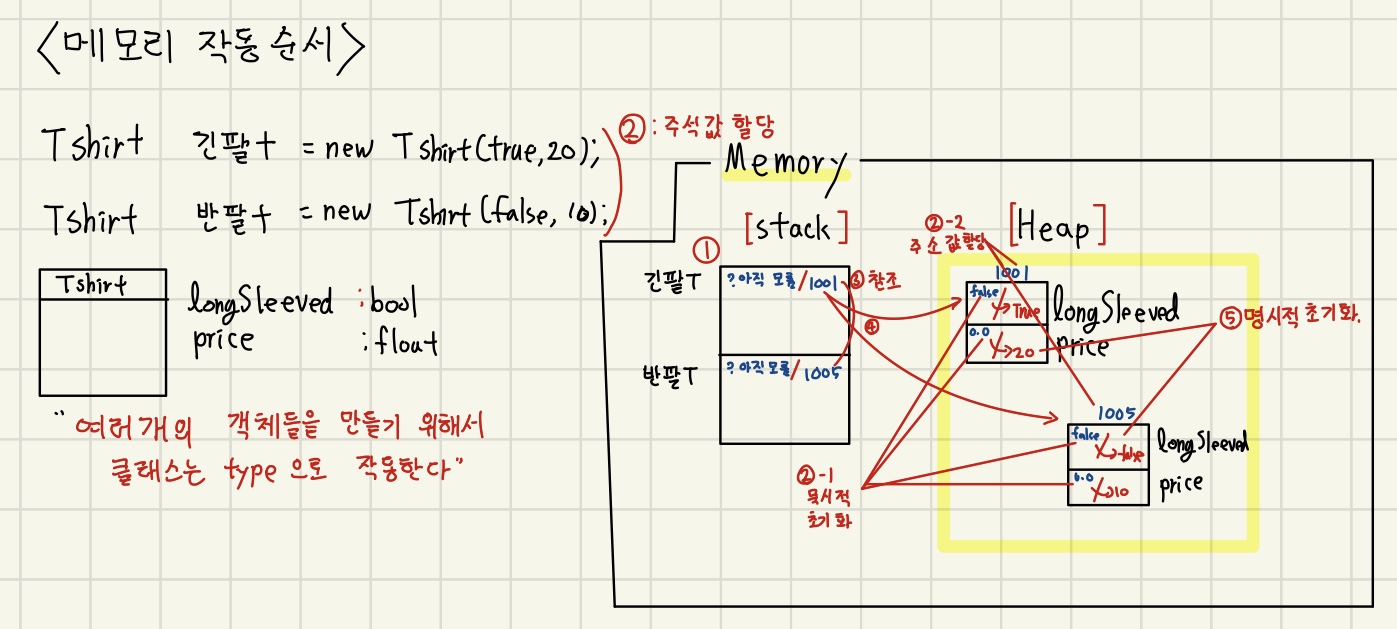 <메모리 작동 순서>
Tshirt 긴팔t = new Tshirt(true,20);
Tshirt 반팔t = new Tshirt(false, 10);
② : 주석값 할당
Tshirt
longSleeved : bool
price : float
"여러개의 객체들을 만들기 위해서
클래스는 type 으로 작동한다"
Memory
[stack]
①
긴팔T
?아직 모름/1001
반팔T
?아직 모름/1005
③ 참조
④
[Heap]
②-2
주소 값할당
1001
false → True
longSleeved
0.0 → 20
price
⑤ 명시적 초기화.
1005
false → false
longSleeved
0.0 → 10
price
②-1
묵시적
초기화